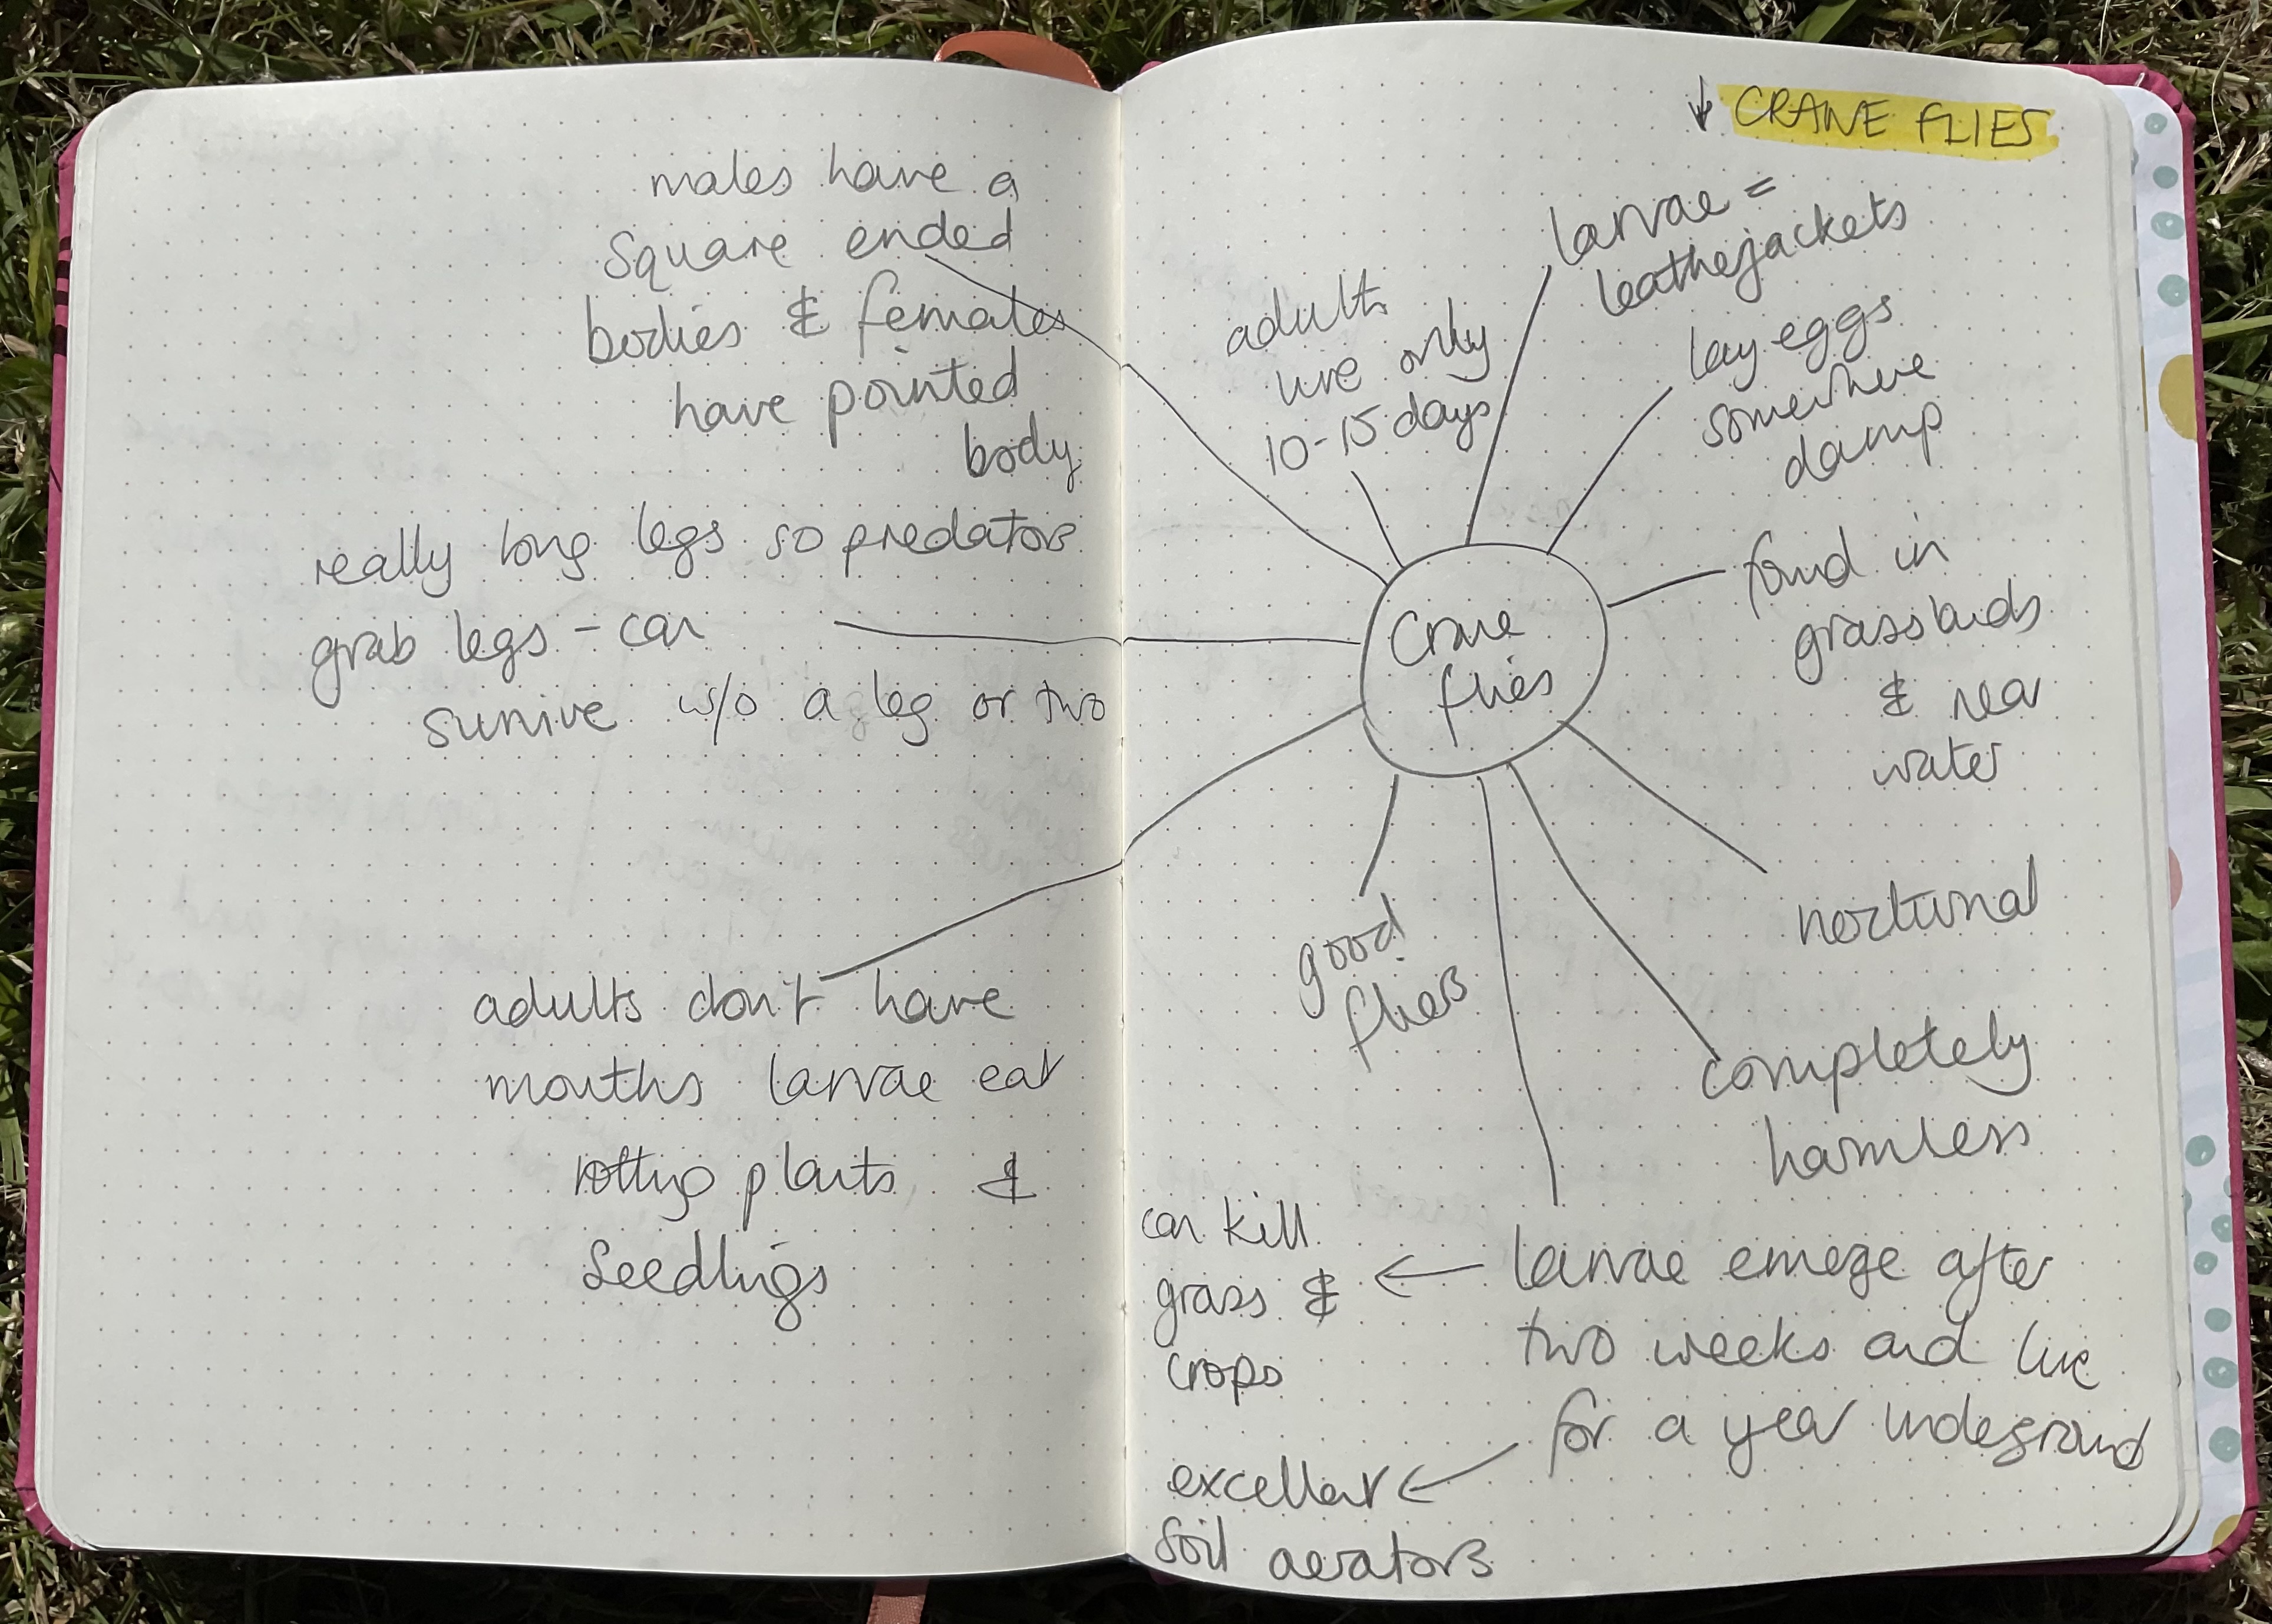 males have a
square ended
bodies & females
have pointed
body
really long legs so predators
grab legs - can
survive w/o a leg or two
adults don't have
mouths larvae eat
rotting plants &
seedlings
↓ CRANE FLIES
larvae =
leatherjackets
adults
live only
10-15 days
lay eggs
somewhere
damp
found in
grasslands
& near
water
Crane
flies
nocturnal
good
fliers
completely
harmless
can kill
grass &
crops
larvae emerge after
two weeks and live
for a year underground
excellent
soil aerators